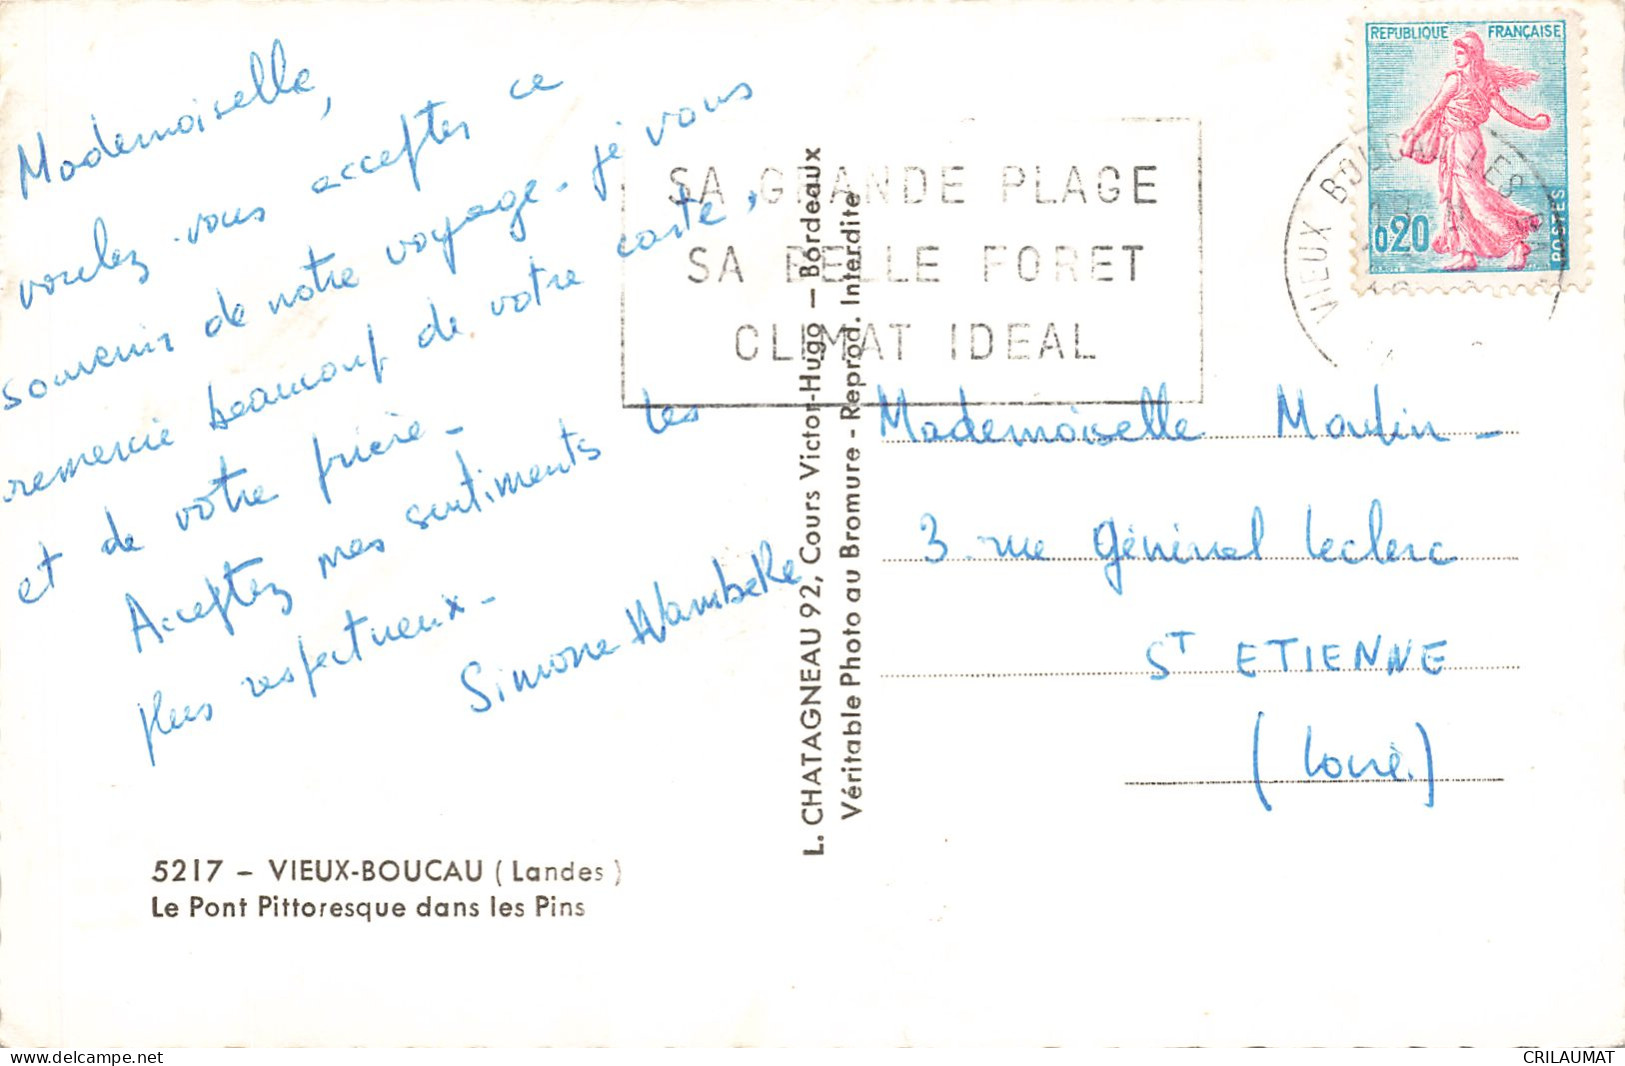 Mademoiselle,
voulez-vous accepter ce
souvenir de notre voyage. je vous
remercie beaucoup de votre carte,
et de votre prière -
Acceptez mes sentiments les
plus respectueux -
Simone Wambeke
5217 - VIEUX-BOUCAU ( Landes )
Le Pont Pittoresque dans les Pins
L. CHATAGNEAU 92, Cours Victor-Hugo - Bordeaux
Véritable Photo au Bromure - Reprod. Interdite
SA GRANDE PLAGE
SA BELLE FORET
CLIMAT IDEAL
VIEUX BOUCAU LES
REPUBLIQUE FRANÇAISE
0,20
POSTES
Mademoiselle Moulin -
3. rue Général Leclerc
ST ETIENNE
(Loire.)
delcampe.net
CRILAUMAT